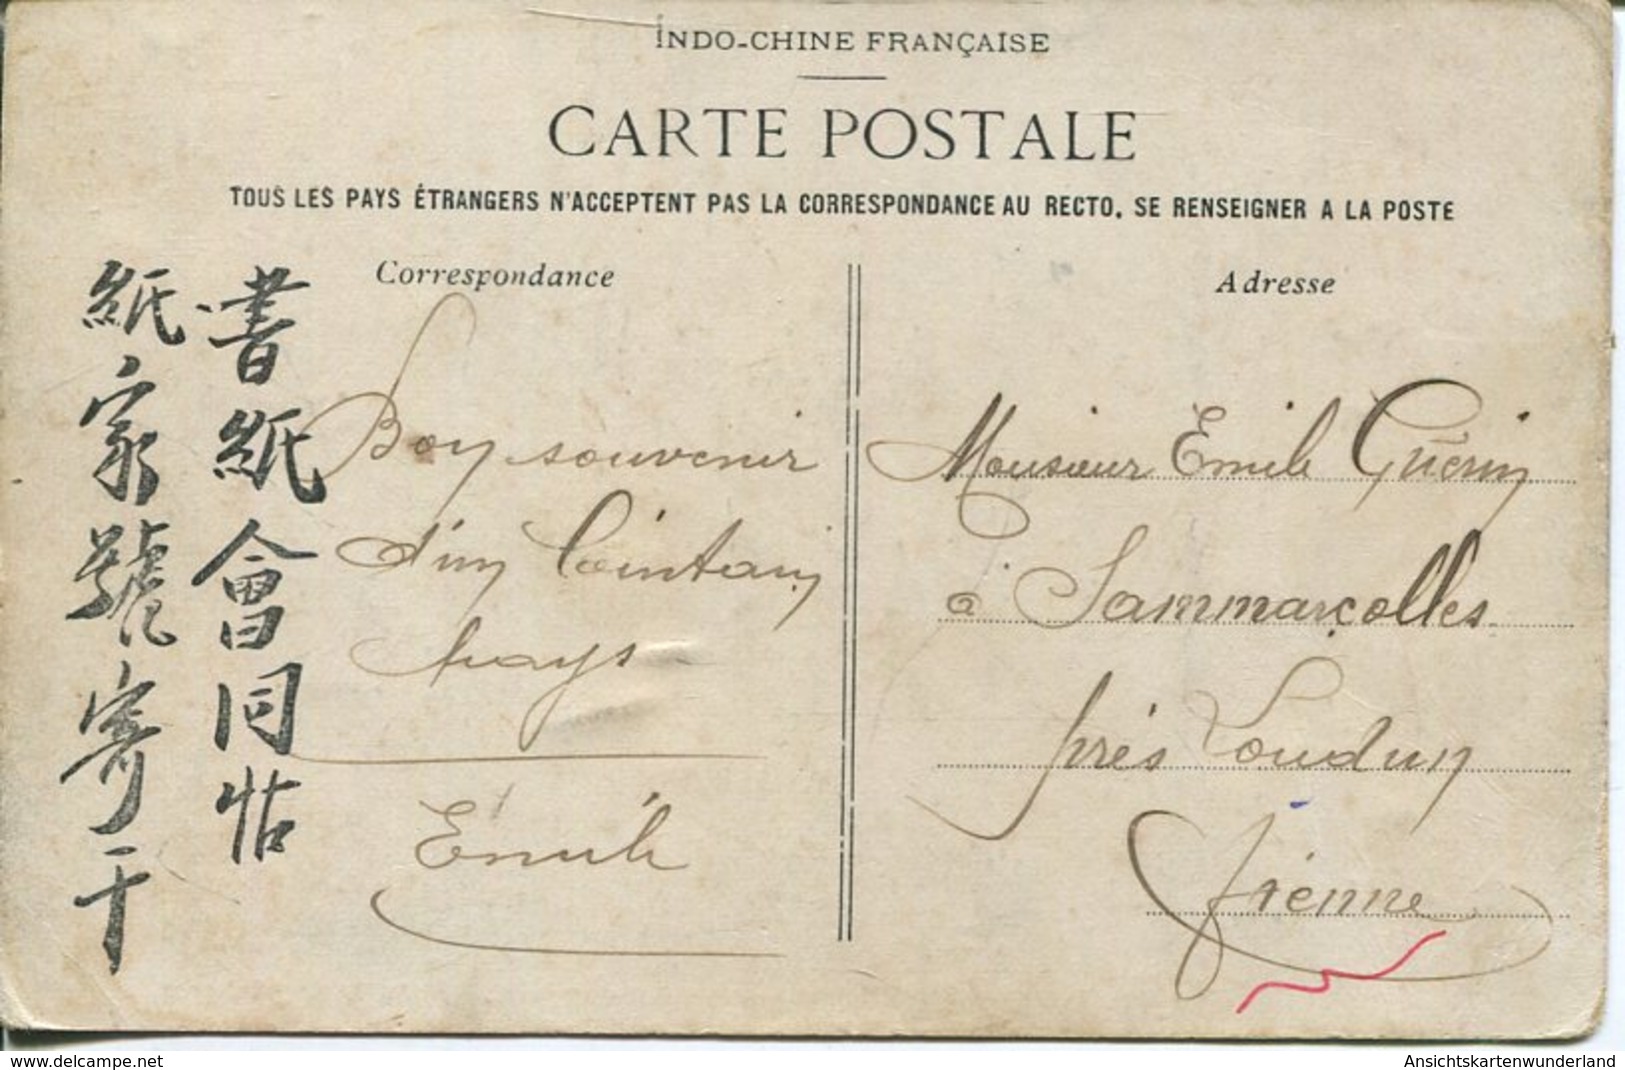 INDO-CHINE FRANÇAISE
CARTE POSTALE
TOUS LES PAYS ÉTRANGERS N'ACCEPTENT PAS LA CORRESPONDANCE AU RECTO. SE RENSEIGNER A LA POSTE
Correspondance
書紙會同帖
紙家號寄干
Bon souvenir
d'un lointain
pays
Emile
Adresse
Monsieur Emile Guérin
à Sammarçolles
près Loudun
Vienne
www.delcampe.net
Ansichtskartenwunderland